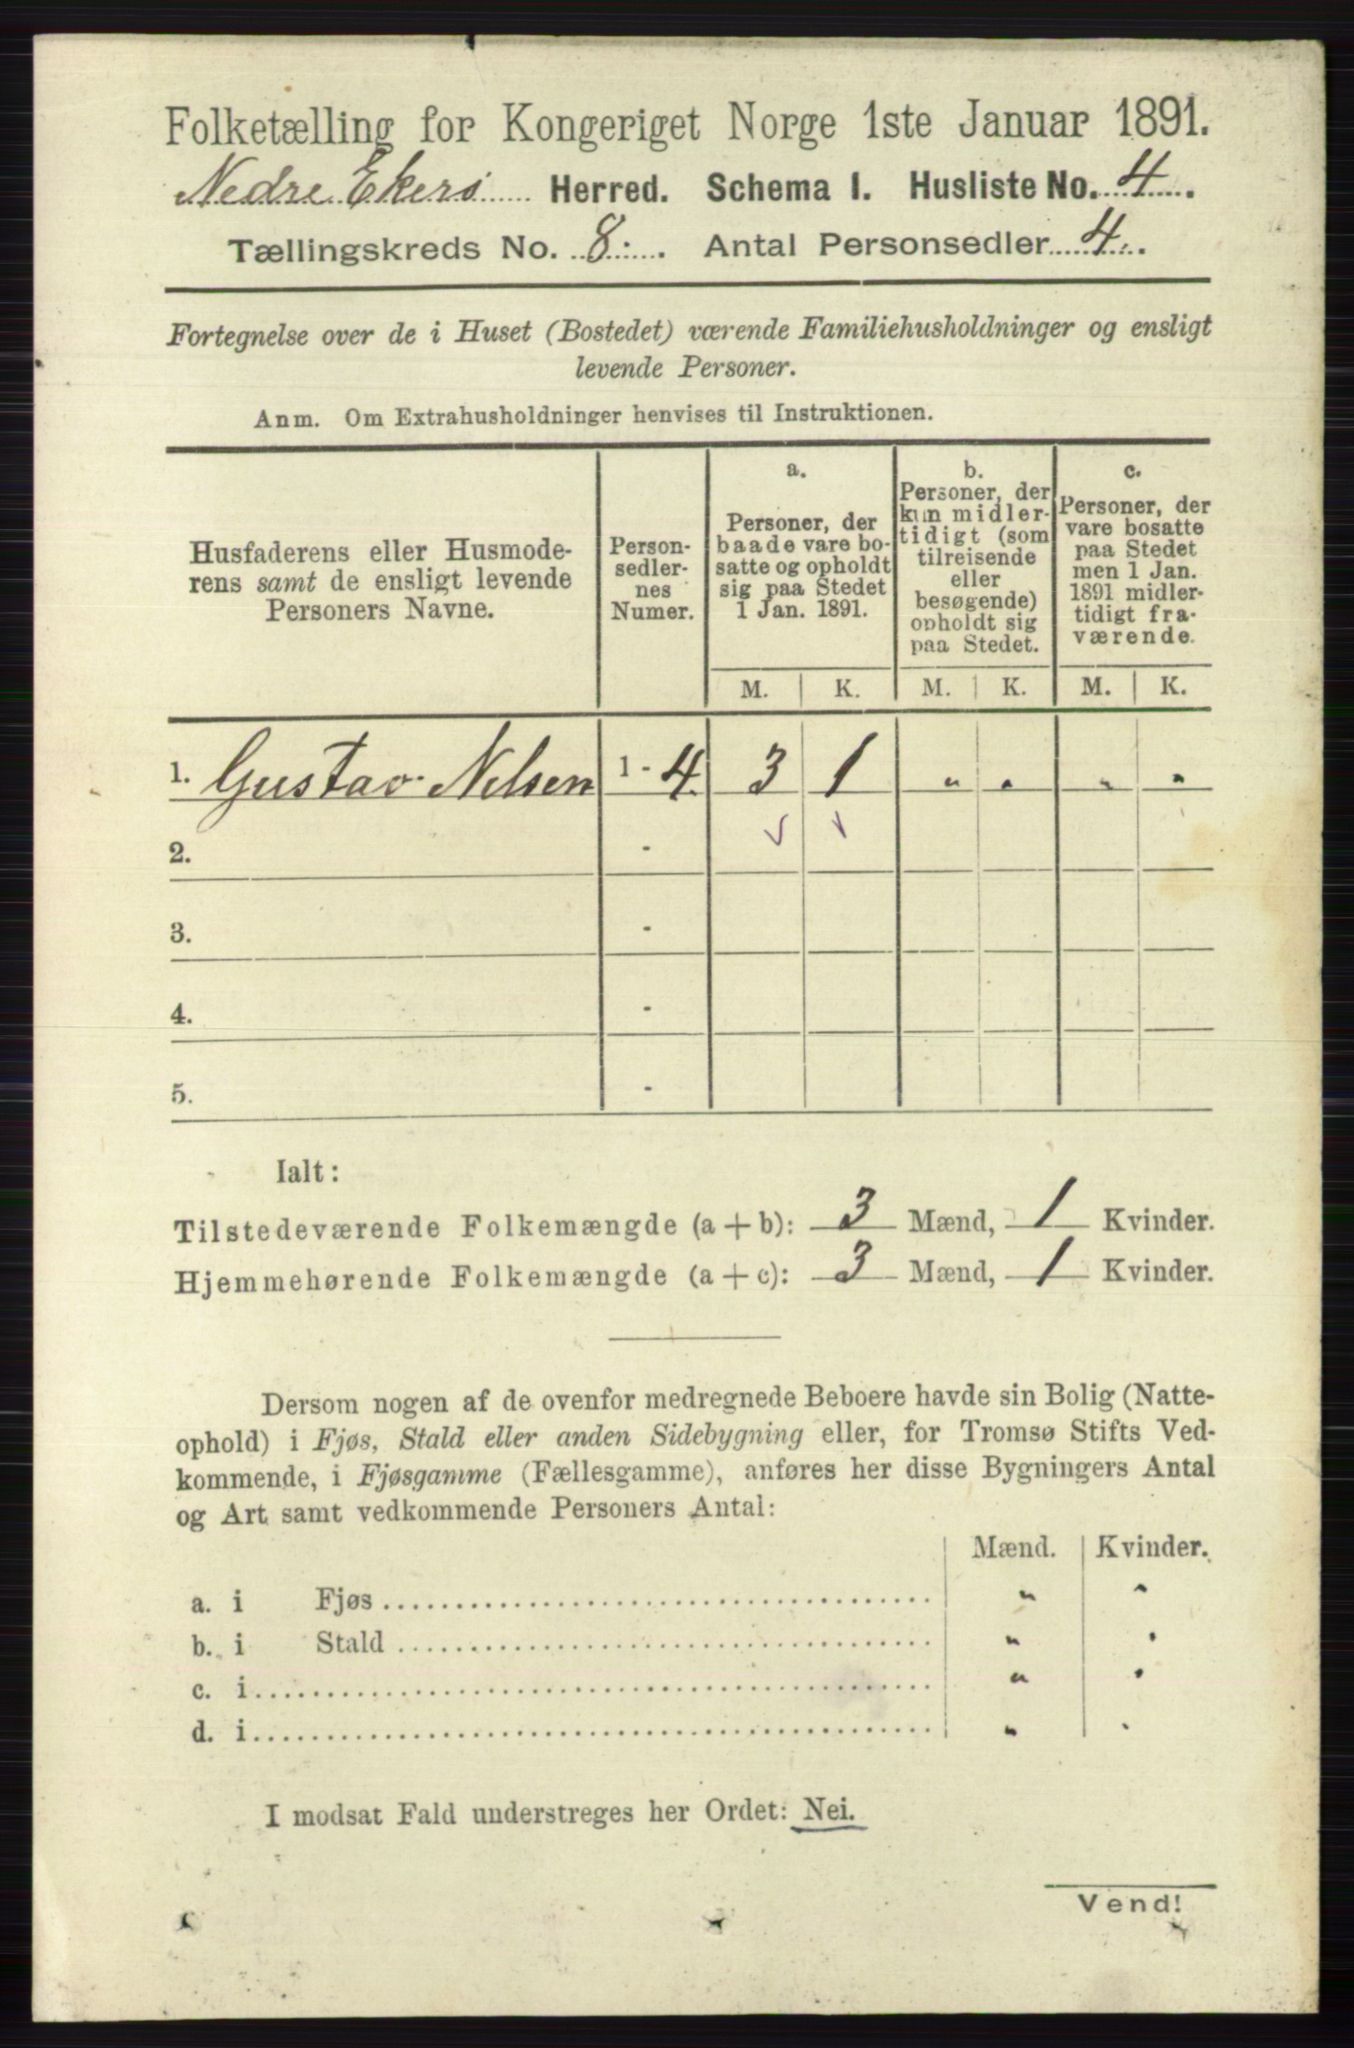 Folketælling for Kongeriget Norge 1ste Januar 1891.
Nedre Ekers Herred. Schema I. Husliste No. 4.
Tællingskreds No. 8. Antal Personsedler 4.
Fortegnelse over de i Huset (Bostedet) værende Familiehusholdninger og ensligt
levende Personer.
Anm. Om Extrahusholdninger henvises til Instruktionen.
Husfaderens eller Husmode-
rens samt de ensligt levende
Personers Navne.
Person-
sedler-
nes
Numer.
a.
Personer, der
baade vare bo-
satte og opholdt
sig paa Stedet
1 Jan. 1891.
b.
Personer, der
kun midler-
tidigt (som
tilreisende
eller
besøgende)
opholdt sig
paa Stedet.
c.
Personer, der
vare bosatte
paa Stedet
men 1 Jan.
1891 midler-
tidigt fra-
værende.
M. K. M. K. M. K.
1. Gustav Nelsen 1 - 4 3 1 " " " "
2. -
3. -
4. -
5. -
Ialt:
Tilstedeværende Folkemængde (a + b): 3 Mænd, 1 Kvinder.
Hjemmehørende Folkemængde (a + c): 3 Mænd, 1 Kvinder.
Dersom nogen af de ovenfor medregnede Beboere havde sin Bolig (Natte-
ophold) i Fjøs, Stald eller anden Sidebygning eller, for Tromsø Stifts Ved-
kommende, i Fjøsgamme (Fællesgamme), anføres her disse Bygningers Antal
og Art samt vedkommende Personers Antal:
Mænd. Kvinder.
a. i Fjøs " "
b. i Stald " "
c. i " "
d. i " "
I modsat Fald understreges her Ordet: Nei.
Vend!